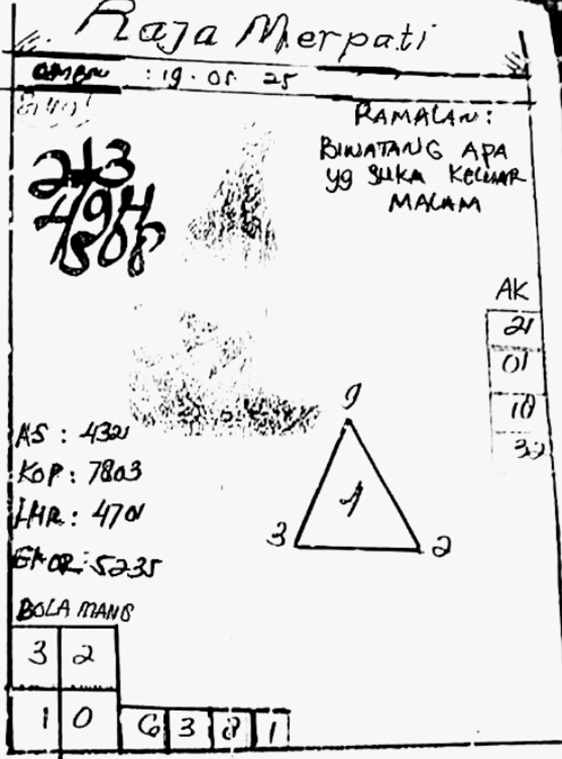 Raja Merpati
: 19 - 05 - 25
RAMALAN:
BINATANG APA
yg SUKA KELUAR
MALAM
213
494
AK
21
01
10
32
AS : 4321
KOP : 7803
LHR : 4701
EKOR : 5235
9
1
3 2
BOLA MANG
3 2
1 0
6 3 8 1